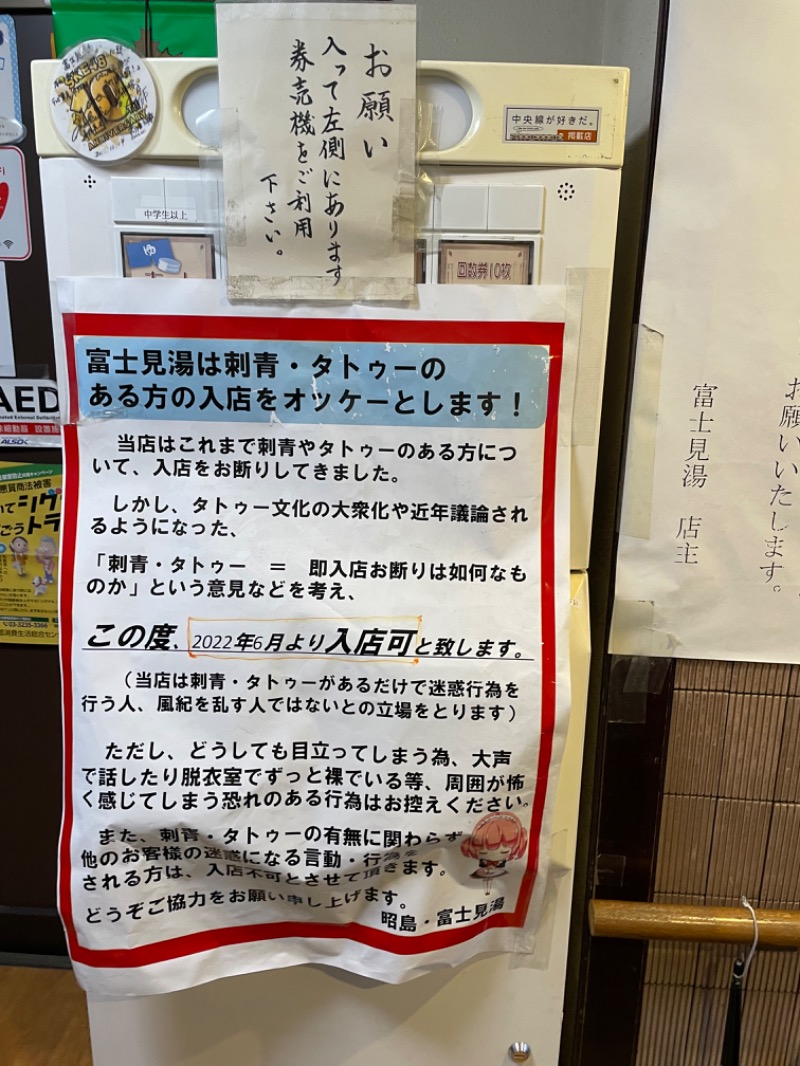 お願い
入って左側にあります
券売機をご利用
下さい。
SKE48
中央線が好きだ。
掲載店
中学生以上
ゆ
回数券10枚
富士見湯は刺青・タトゥーの
ある方の入店をオッケーとします！
当店はこれまで刺青やタトゥーのある方につ
いて、入店をお断りしてきました。
しかし、タトゥー文化の大衆化や近年議論され
るようになった、
「刺青・タトゥー ＝ 即入店お断りは如何なも
のか」という意見などを考え、
この度、2022年6月より入店可と致します。
（当店は刺青・タトゥーがあるだけで迷惑行為を
行う人、風紀を乱す人ではないとの立場をとります）
ただし、どうしても目立ってしまう為、大声
で話したり脱衣室でずっと裸でいる等、周囲が怖
く感じてしまう恐れのある行為はお控えください。
また、刺青・タトゥーの有無に関わらず
他のお客様の迷惑になる言動・行為を
される方は、入店不可とさせて頂きます。
どうぞご協力をお願い申し上げます。
昭島・富士見湯
お願いいたします。
富士見湯 店主
AED
ALSOK
悪質商法被害
03-3235-3366